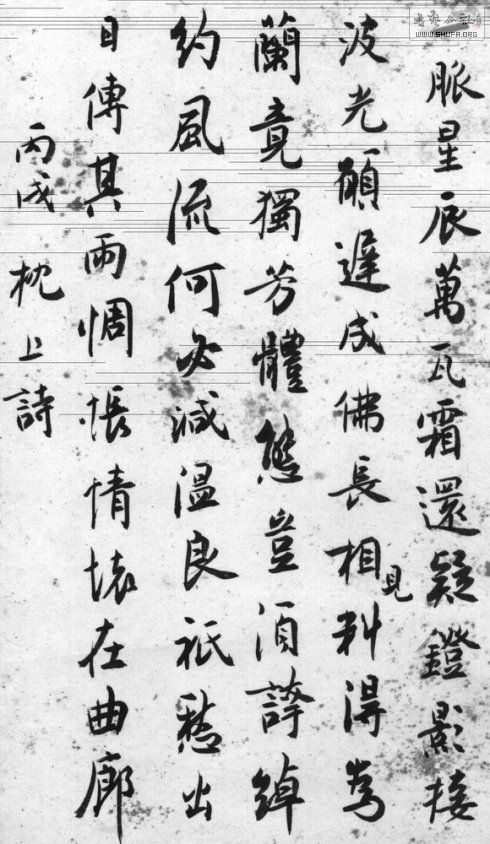 脈星辰萬瓦霜還疑鐙影接
波光願遲成佛長相見判得為
蘭竟獨芳體態豈須誇綽
約風流何必減溫良祇愁出
日傳其雨惆悵情懷在曲廊
丙戌枕上詩
WWW.SHUFA.ORG